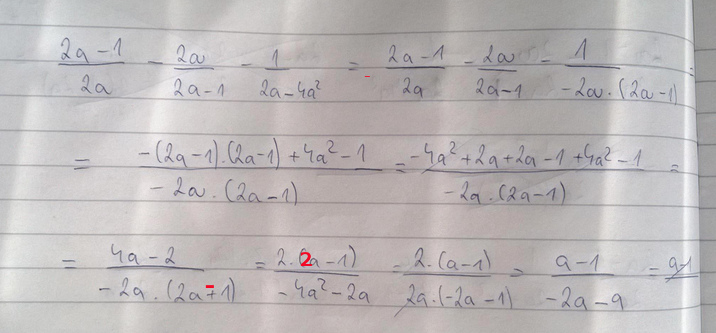 (2a-1)/(2a) - (2a)/(2a-1) - 1/(2a-4a²) = (2a-1)/(2a) - (2a)/(2a-1) - 1/(-2a·(2a-1)) =
= (-(2a-1)·(2a-1)+4a²-1)/(-2a·(2a-1)) = (-4a²+2a+2a-1+4a²-1)/(-2a·(2a-1)) =
= (4a-2)/(-2a·(2a-1)) = (2·(2a-1))/(-4a²-2a) = (2·(a-1))/(2a·(-2a-1)) = (a-1)/(-2a-a) =